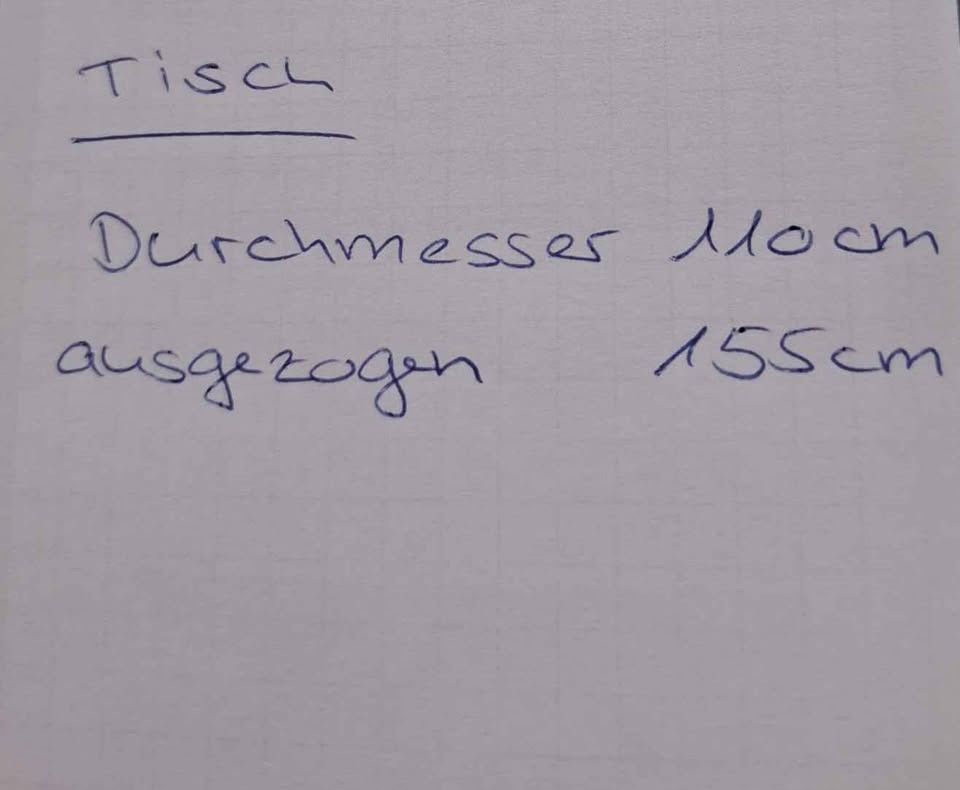 Tisch
Durchmesser 110 cm
ausgezogen 155 cm